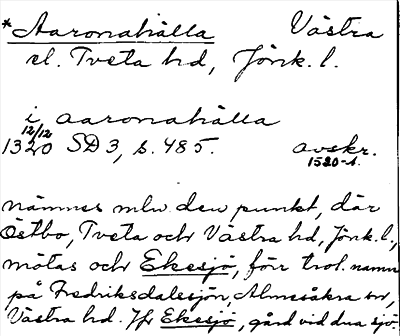 *Aaronahälla Västra
el. Tveta hd, Jönk. l.
i aaronahälla
12/12
1320 SD 3, s. 485. avskr.
1520-t.
nämnes mlw den punkt, där
Östbo, Tveta och Västra hd, Jönk. l.,
mötas och Ekesjö, förr trol. namn
på Fredriksdalasjön, Almesåkra sn,
Västra hd. Jfr Ekesjö, gård vid dna sjö